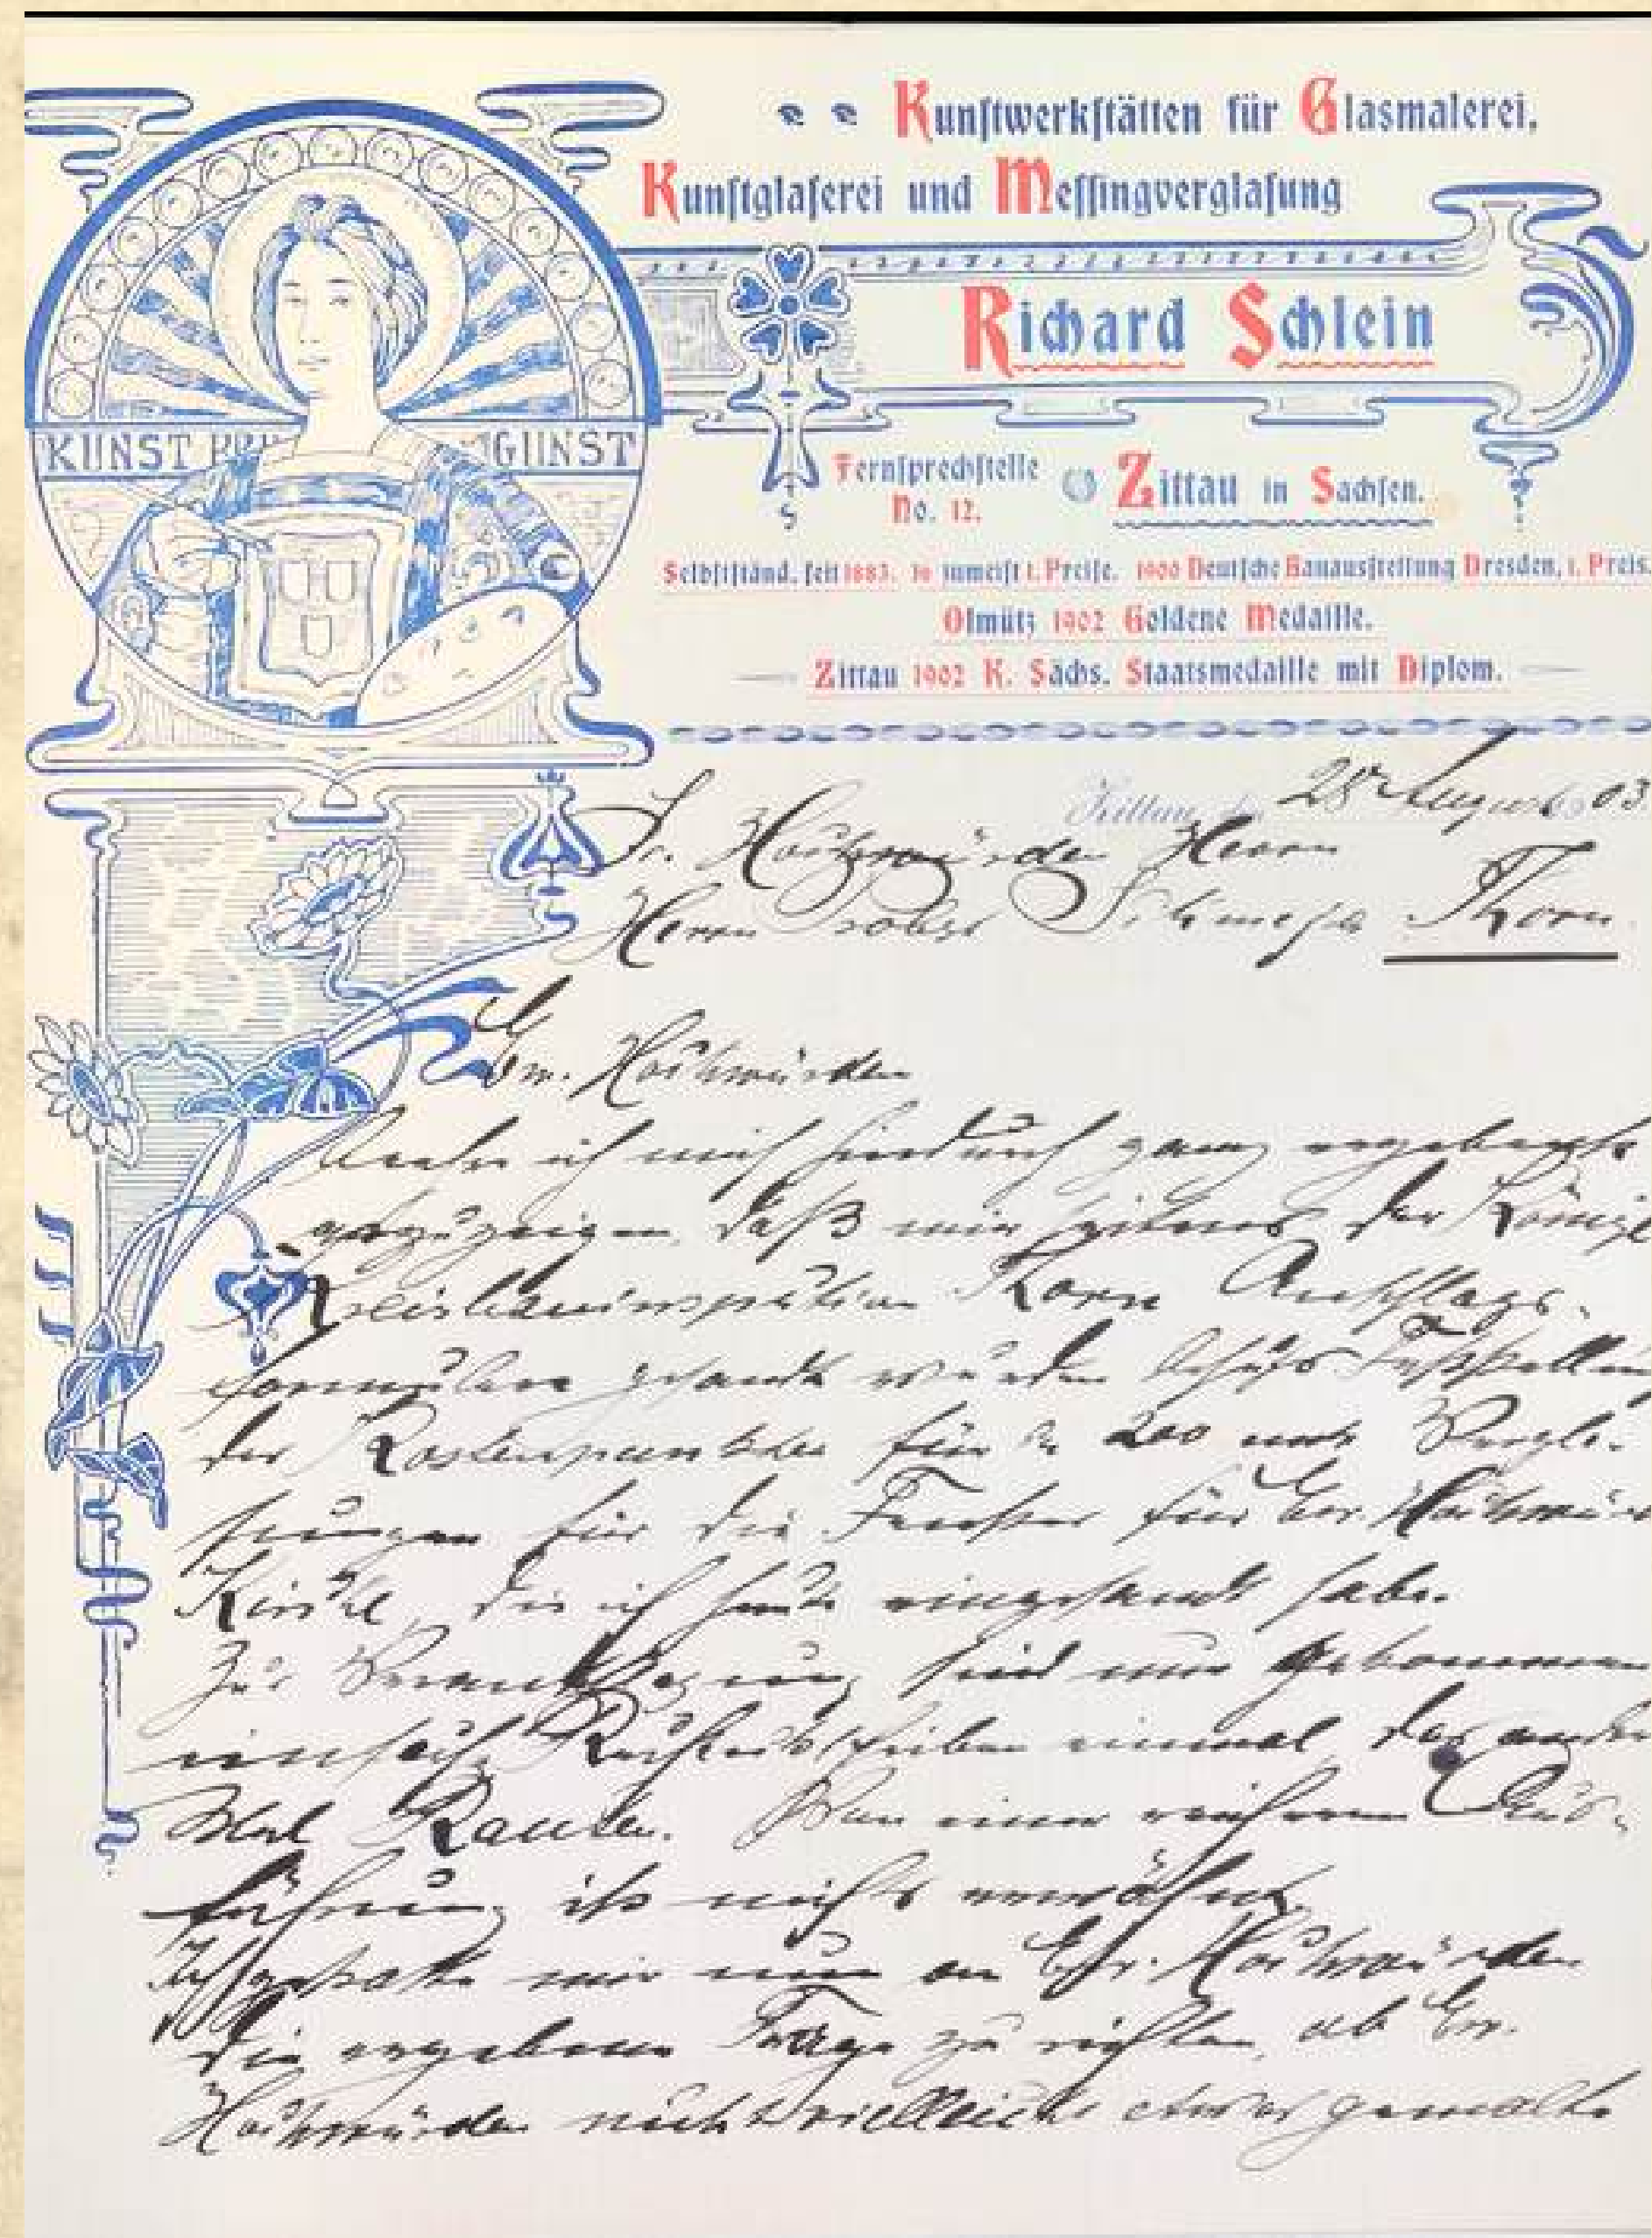 Kunſtwerkſtätten für Glasmalerei,
Kunſtglaſerei und Meſſingverglaſung
Richard Schlein
KUNST GUNST
Fernſprechſtelle
No. 12.
Zittau in Sachſen.
Selbſtſtänd. ſeit 1883. zumeiſt 1. Preiſe. 1900 Deutſche Bauausſtellung Dresden, 1. Preis.
Olmütz 1902 Goldene Medaille.
Zittau 1902 K. Sächs. Staatsmedaille mit Diplom.
Zittau, 28 August 03
Sr. Hochwürden Herrn
Herrn Probst Schmeja Thorn
Ew. Hochwürden
ich mich hierdurch ganz ergebenst
anzuzeigen, daß mir seitens der Königl
Kreisbauinspektion Thorn Anschlags-
formulare gesandt wurden behufs Feststellung
der Kostenpunktes für 200 Vergla-
sungen für die Fenster für Ew. Hochwür
Kirche, die ich heute eingesandt habe.
Zur Veranschlagung sind nun gekommen
einfach Rechteckscheiben einmal, das andere
Mal Rauten. Von einer reicheren Aus-
führung ist nichts erwähnt.
Ich gestatte mir nun an Ew. Hochwürden
die ergebene Frage zu richten, ob Ew.
Hochwürden nicht vielleicht etwas gemalte